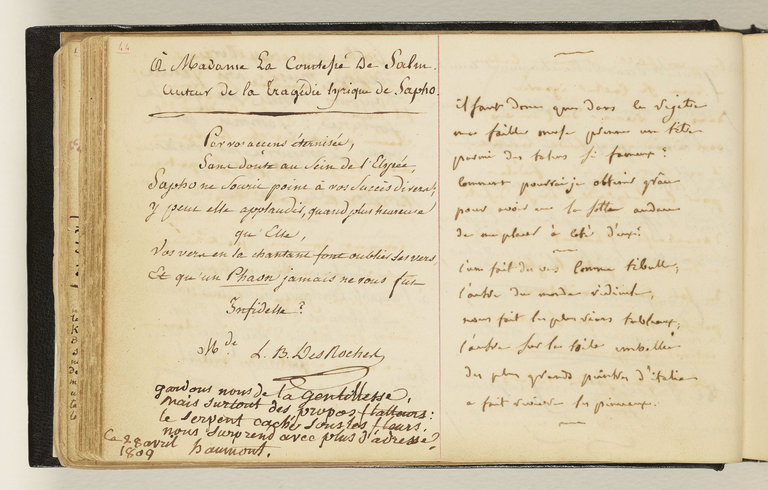 44
à Madame La Comtesse De Salm.
auteur de la Tragédie lyrique de Sapho.
Par vos accens éternisée,
Sans doute au Sein de l'Elysée,
Sapho ne Sourit point à vos Succès divers;
y peut elle applaudir, quand plus heureuse
que Elle,
Vos vers en la chantant font oublier Ses vers
Et qu'un Phaon jamais ne vous fut
Infidelle?
M.de L. B. DesRoches
gardons nous de la gentillesse,
mais surtout des propos flatteurs:
le serpent caché sous les fleurs,
nous surprend avec plus d'adresse?
Ce 28 avril
1809
haumont.
il faut donc que dans le
ma faible muse prenne un titre
parmi des fameux?
Comment pourrai-je obtenir grâce
pour avoir eu la sotte audace
de me placer à côté d'eux?
l'un fait des vers comme tibulle,
l'autre du monde ridicule,
nous fait les plus vrais tableaux,
l'autre sur la toile
des plus grands peintres d'italie
a fait revivre les pinceaux.